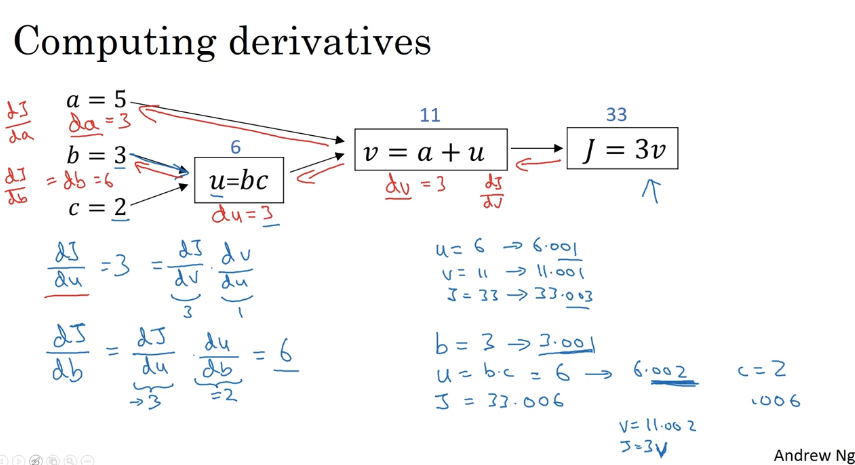 Computing derivatives
a = 5
dJ/da
da = 3
b = 3
dJ/db = db = 6
c = 2
6
u=bc
du = 3
11
v = a + u
dv = 3 dJ/dv
33
J = 3v
dJ/du = 3 = dJ/dv · dv/du
3 1
dJ/db = dJ/du · du/db = 6
→3 =2
u = 6 → 6.001
v = 11 → 11.001
J = 33 → 33.003
b = 3 → 3.001
u = b.c = 6 → 6.002 c = 2
J = 33.006 .006
v = 11.002
J = 3v
Andrew Ng